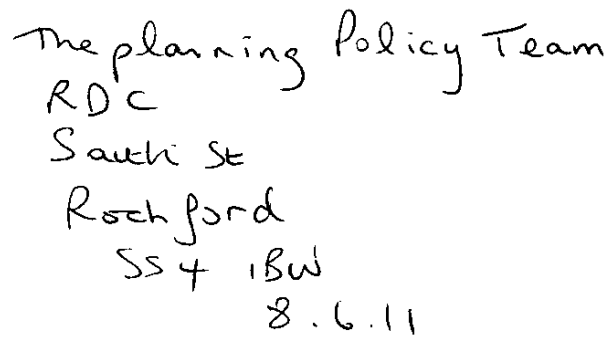 The planning Policy Team
RDC
South St
Rochford
SS4 1BW
8.6.11